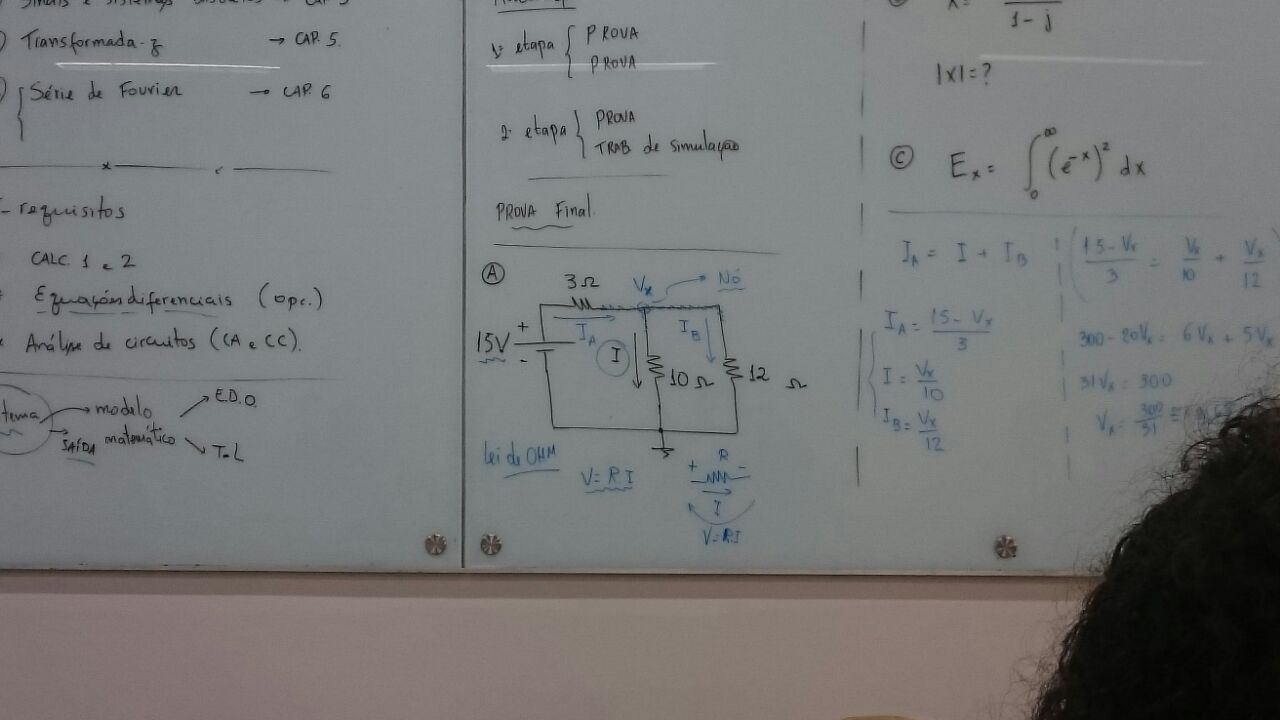 Transformada-z → CAP. 5.
Série de Fourier → CAP. 6
- requisitos
CALC. 1 e 2
Equações diferenciais (opc.)
Análise de circuitos (CA e CC).
modelo
matemático
SAÍDA
E.D.O.
1ª etapa { PROVA
PROVA
2ª etapa { PROVA
TRAB de simulação
PROVA Final.
(A)
3Ω
Vx
Nó
15V
+
-
I_A
I
I_B
10 Ω
12 Ω
Lei de OHM
V = R I
R
+ -
I
V = RI
1 - j
|x| = ?
(C) Ex = ∫₀^∞ (e^-x)² dx
I_A = I + I_B
I_A = (15 - Vx)/3
I = Vx/10
I_B = Vx/12
(15 - Vx)/3 = Vx/10 + Vx/12
300 - 20Vx = 6Vx + 5Vx
31Vx = 300
Vx = 300/31